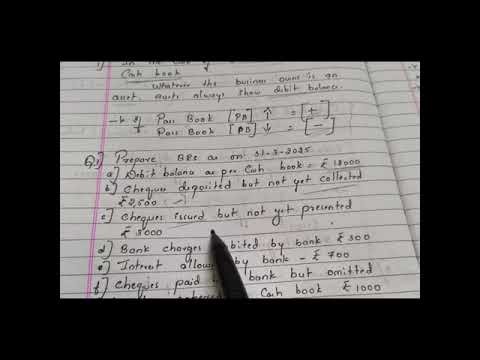 Cash book
Whatever the business owns is an
asset. assets always show debit balance.
Pass Book [PB] ↑ = [+]
Pass Book [PB] ↓ = [-]
Q.1] Prepare BRS as on 31-3-2025
a) Debit balance as per Cash book = ₹ 18000
b) Cheques deposited but not yet collected
₹ 2,500
c) Cheques issued but not yet presented
₹ 3000
d) Bank charges debited by bank ₹ 300
e) Interest allowed by bank - ₹ 700
f] Cheques paid bank but omitted
Cash book ₹ 1000